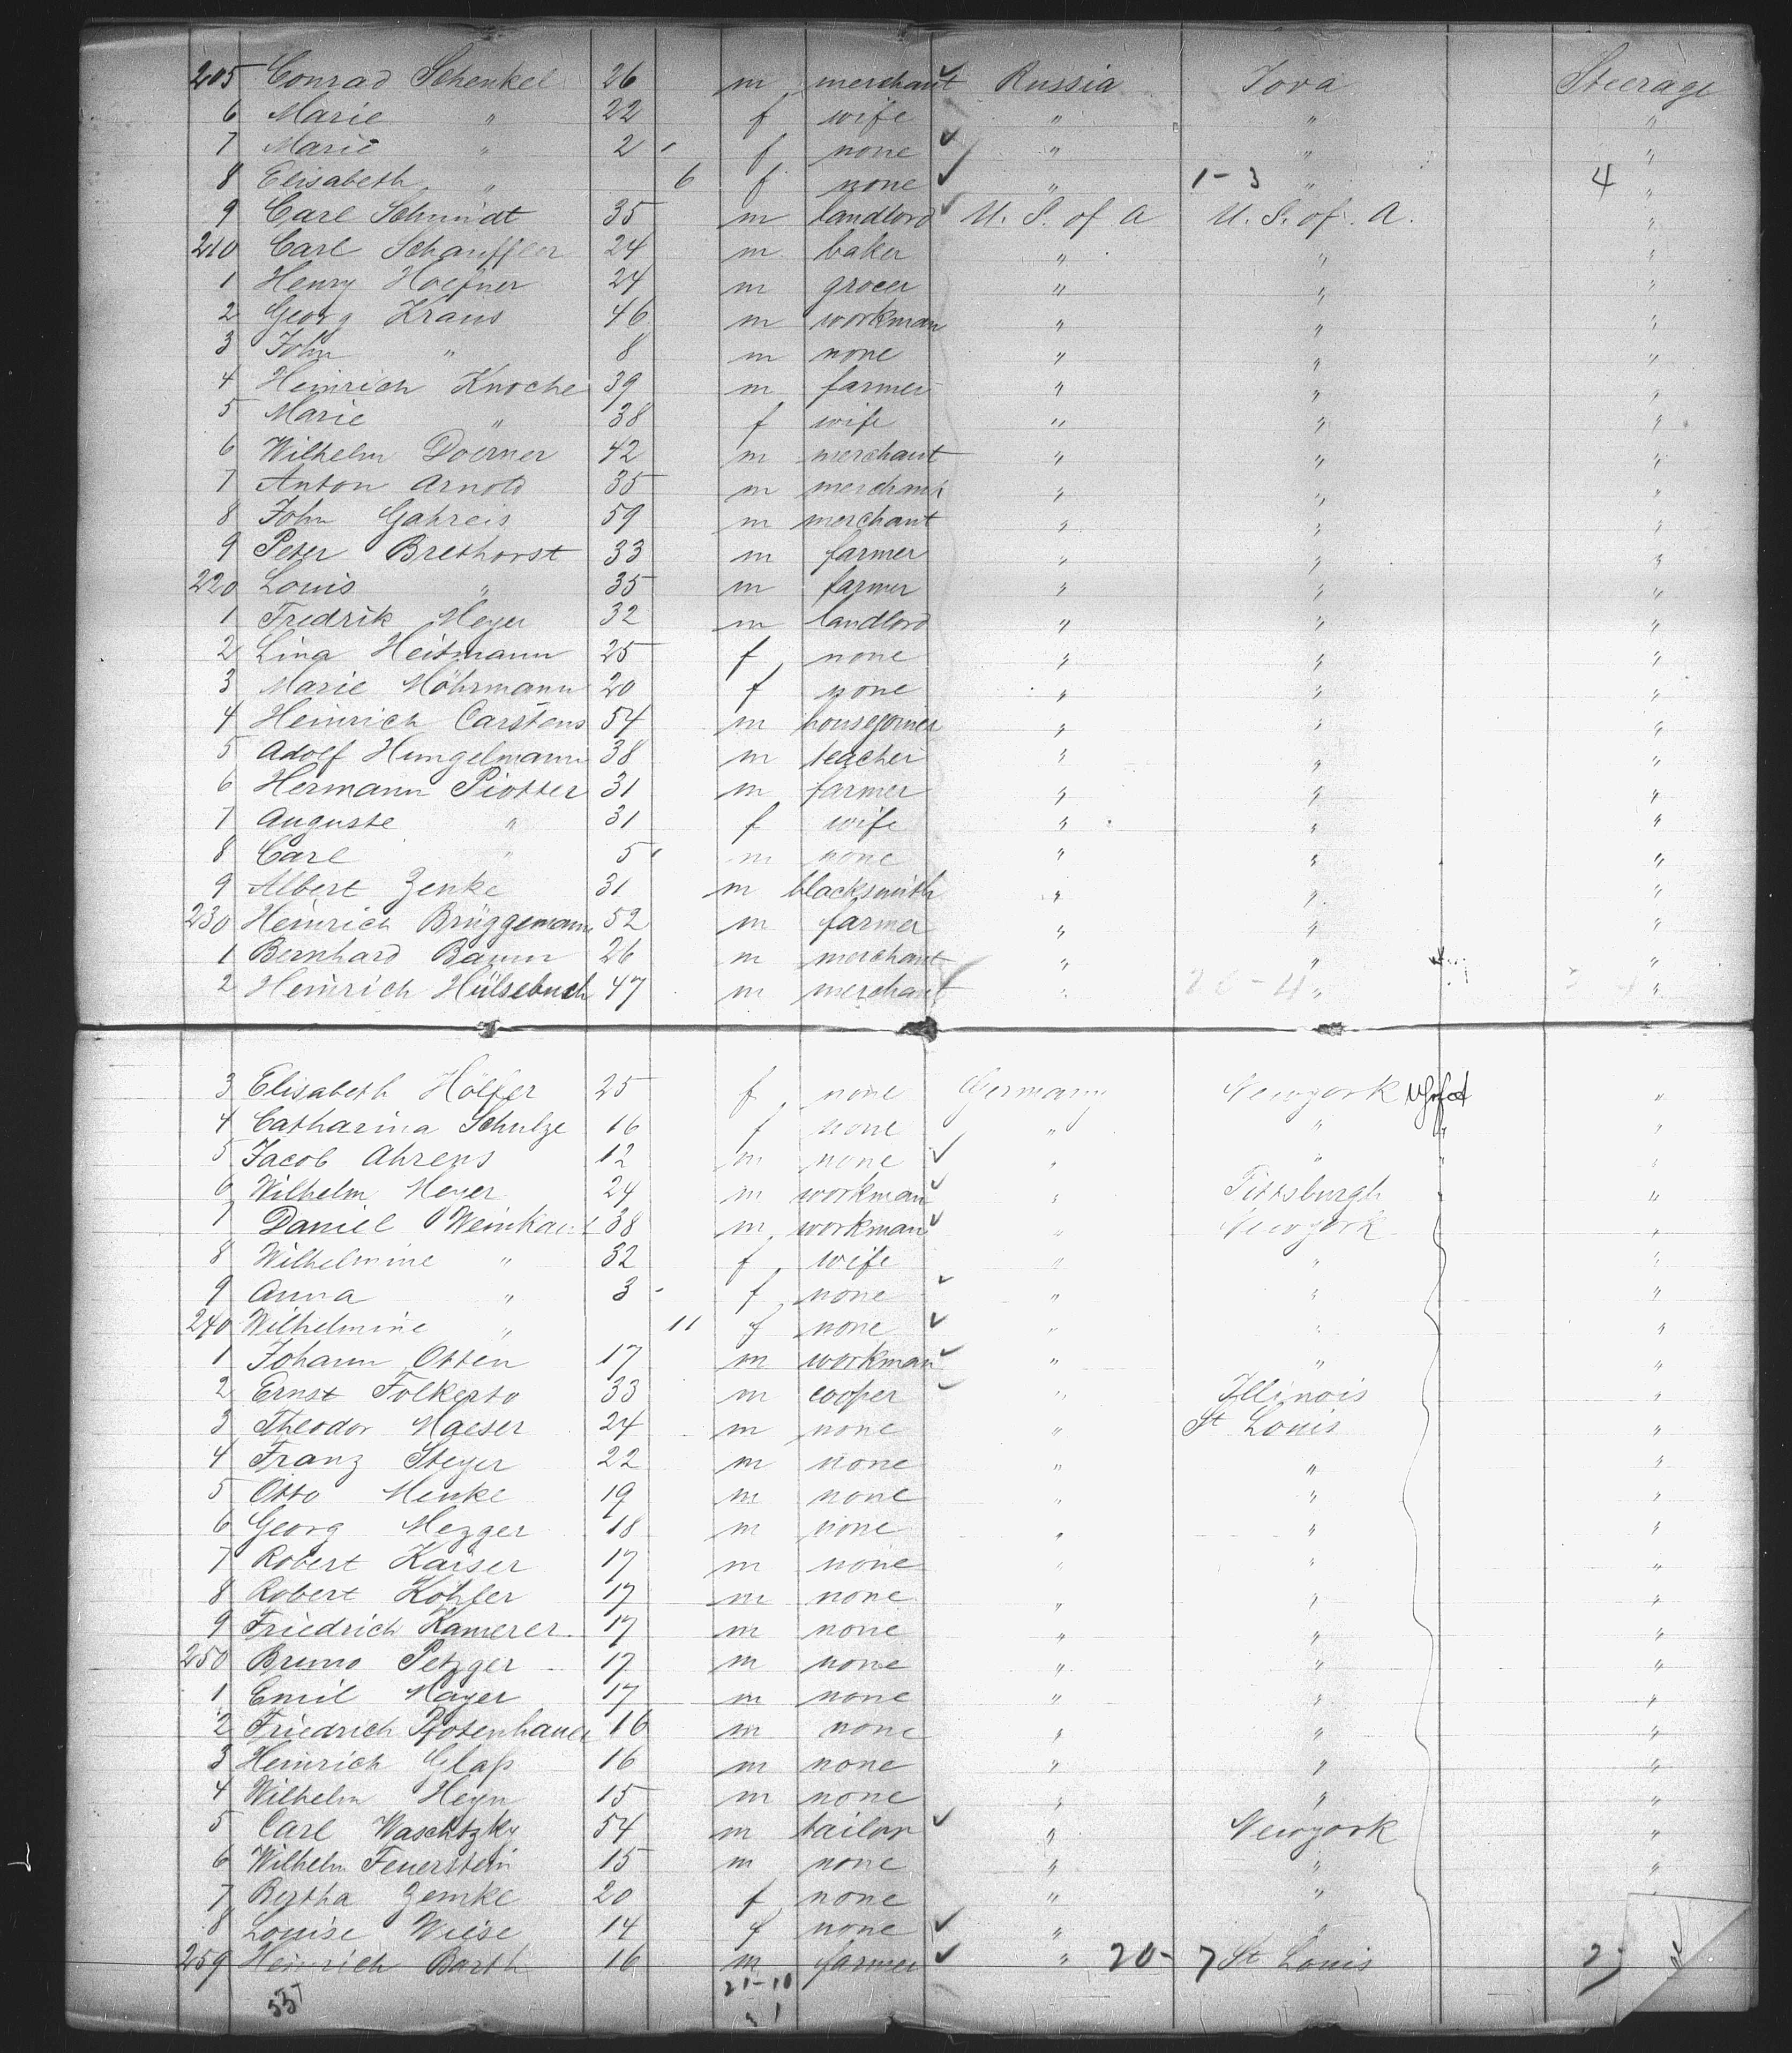 205 Conrad Schenkel 26 m merchant Russia Iova Steerage
6 Marie " 22 f wife " " "
7 Marie " 2 f none " " "
8 Elisabeth " 6 f none " 1-3 " 4 "
9 Carl Schmidt 35 m landlord U. S. of A U. S. of A. "
210 Carl Schauffler 24 m baker " " "
1 Henry Hoefner 24 m grocer " " "
2 Georg Kraus 46 m workman " " "
3 John " 8 m none " " "
4 Heinrich Knoche 39 m farmer " " "
5 Marie " 38 f wife " " "
6 Wilhelm Doerner 42 m merchant " " "
7 Anton Arnold 35 m merchant " " "
8 John Gahreis 59 m merchant " " "
9 Peter Brethorst 33 m farmer " " "
220 Louis " 35 m farmer " " "
1 Fredrik Meyer 32 m landlord " " "
2 Lina Heitmann 25 f none " " "
3 Marie Möhrmann 20 f none " " "
4 Heinrich Carstens 54 m " " "
5 Adolf Hungelmann 38 m teacher " " "
6 Hermann Piotter 31 m farmer " " "
7 Auguste " 31 f wife " " "
8 Carl " 5 m none " " "
9 Albert Zenke 31 m blacksmith " " "
230 Heinrich Brüggemann 52 m farmer " " "
1 Bernhard Baum 26 m merchant " " "
2 Heinrich Hülsebusch 47 m merchant " 26-4 " "
3 Elisabeth Hölfer 25 f none Germany Newyork "
4 Catharina Schulze 16 f none " " "
5 Jacob Ahrens 12 m none " " "
6 Wilhelm Meyer 24 m workman " Pittsburgh "
7 Daniel 38 m workman " Newyork "
8 Wilhelmine " 32 f wife " " "
9 Anna " 3 f none " " "
240 Wilhelmine " 11 f none " " "
1 Johann Otten 17 m workman " " "
2 Ernst Folkerts 33 m cooper " Illinois "
3 Theodor Maeser 24 m none " St Louis "
4 Franz Steyer 22 m none " " "
5 Otto Menke 19 m none " " "
6 Georg Mezger 18 m none " " "
7 Robert Kaiser 17 m none " " "
8 Robert Kohler 17 m none " " "
9 Friedrich Kamerer 17 m none " " "
250 Bruno Petzger 17 m none " " "
1 Emil Mayer 17 m none " " "
2 Friedrich Pfotenhauer 16 m none " " "
3 Heinrich Glaß 16 m none " " "
4 Wilhelm Heyn 15 m none " " "
5 Carl Waschtzky 54 m tailor " Newyork "
6 Wilhelm Feuerstein 15 m none " " "
7 Bertha Zemke 20 f none " " "
8 Louise Wiese 14 f none " " "
259 Heinrich Barth 16 m farmer " 20-7 St Louis
55 21-10